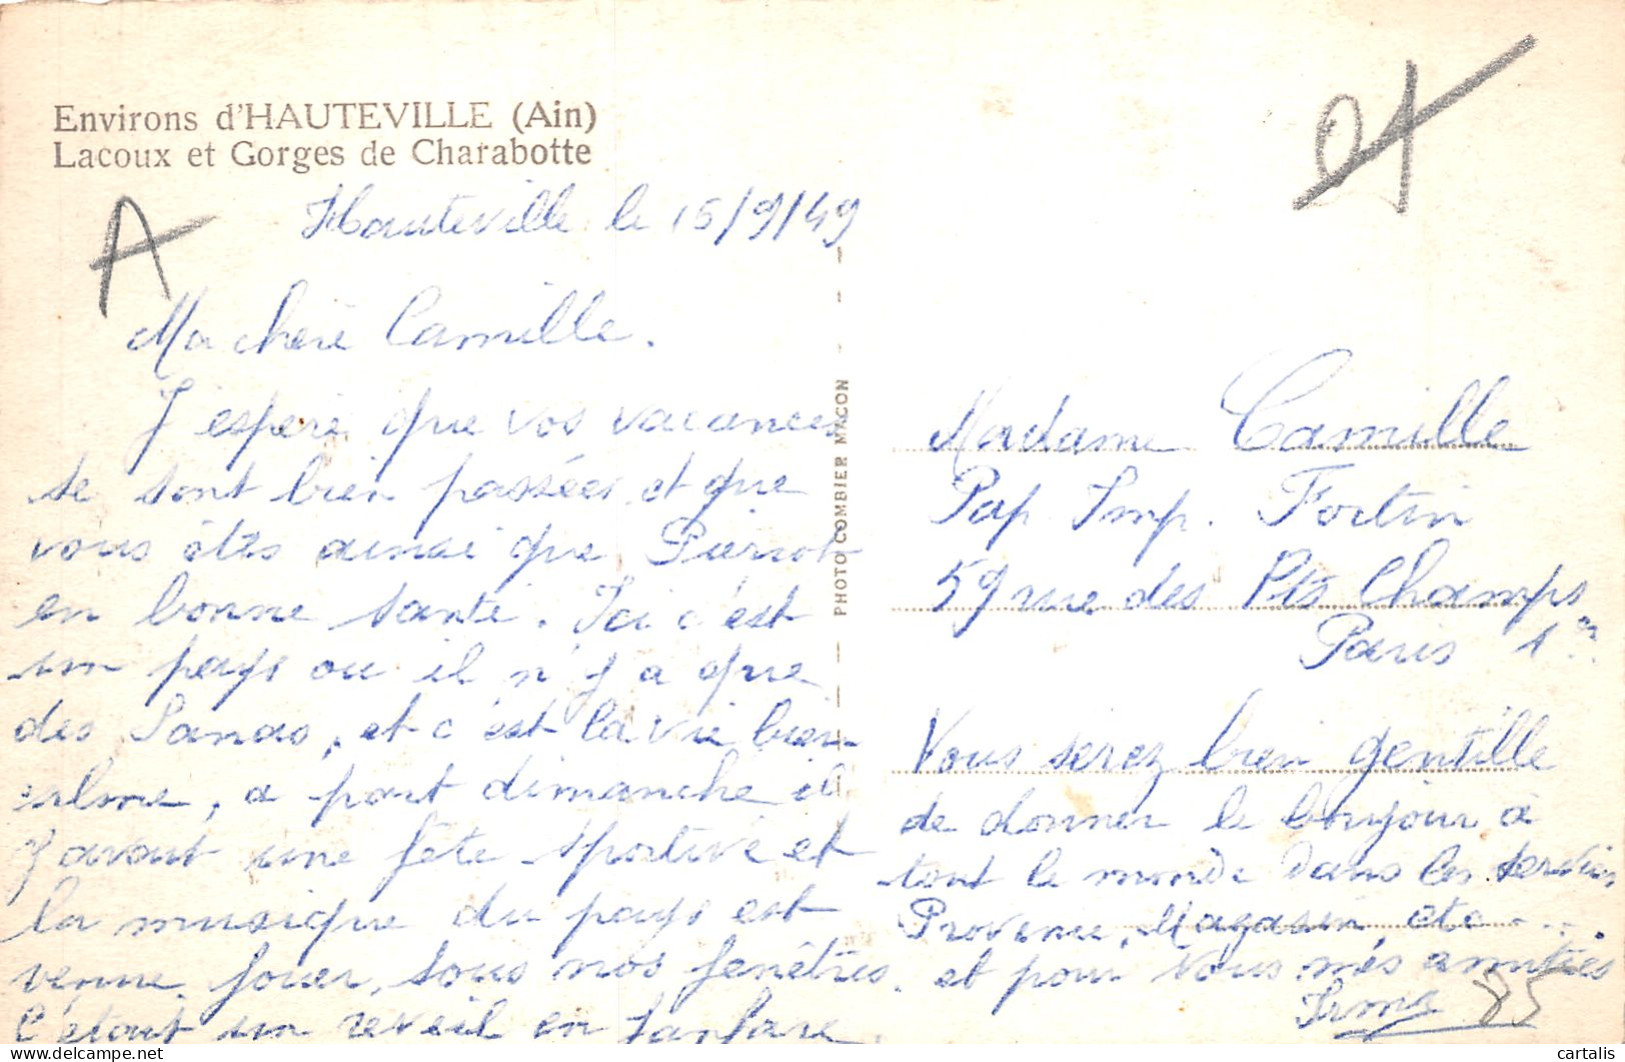 Environs d'HAUTEVILLE (Ain)
Lacoux et Gorges de Charabotte
A
Hauteville le 15/9/49
Ma chère Camille.
J'espère que vos vacances
se sont bien passées et que
vous êtes ainsi que Pierrot
en bonne santé. Ici c'est
un pays ou il n'y a que
des Sanas, et c'est la vie bien
calme, a part dimanche il
y avait une fête sportive et
la musique du pays est
venue jouer sous nos fenêtres.
C'était un réveil en fanfare.
PHOTO COMBIER MACON
Madame Camille
Pap. Imp. Fortin
59 rue des Pts Champs
Paris 1er
Vous serez bien gentille
de donner le bonjour à
tout le monde dans les services
Province, Magasin, etc...
et pour vous mes amitiés
Irma
85
www.delcampe.net
cartalis